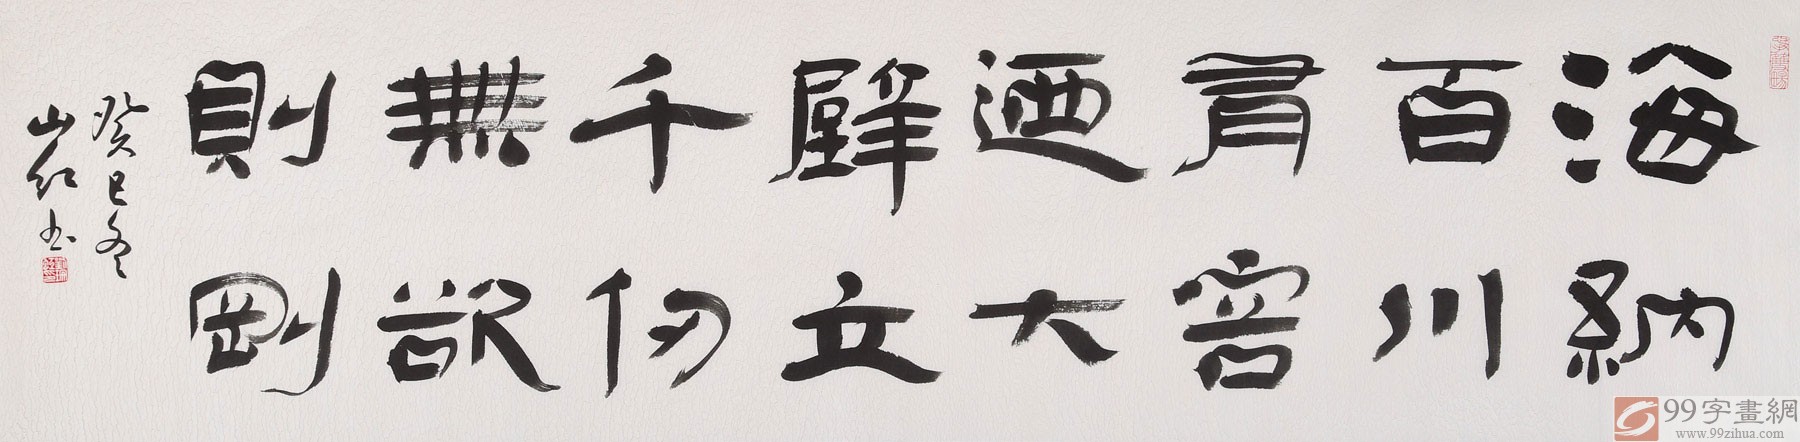 海納
百川
有容
迺大
壁立
千仞
無欲
則剛
癸巳冬
山红书
99字畫網
www.99zihua.com